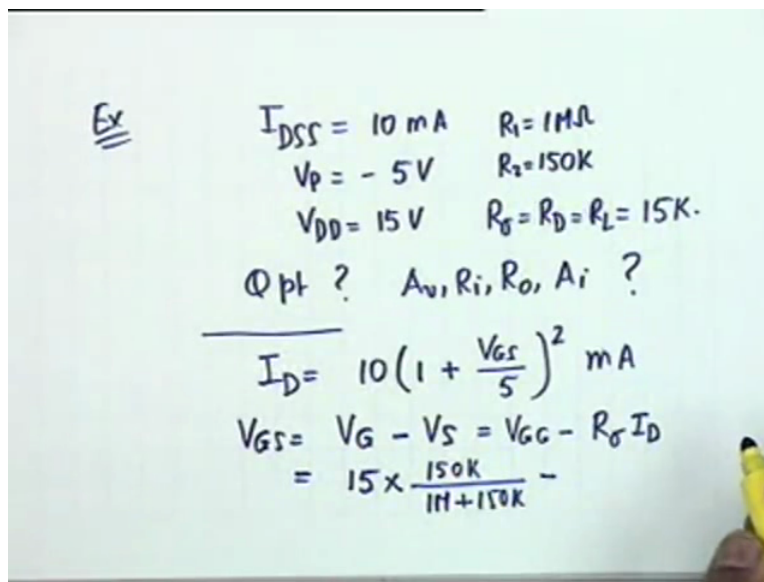 Ex I_DSS = 10 mA R₁ = 1MΩ
V_P = - 5V R₂ = 150K
V_DD = 15 V R_σ = R_D = R_L = 15K.
Q pt ? A_v, R_i, R_o, A_i ?
I_D = 10 (1 + V_GS/5)² mA
V_GS = V_G - V_S = V_GG - R_σ I_D
= 15 × 150K/(1M+150K) -